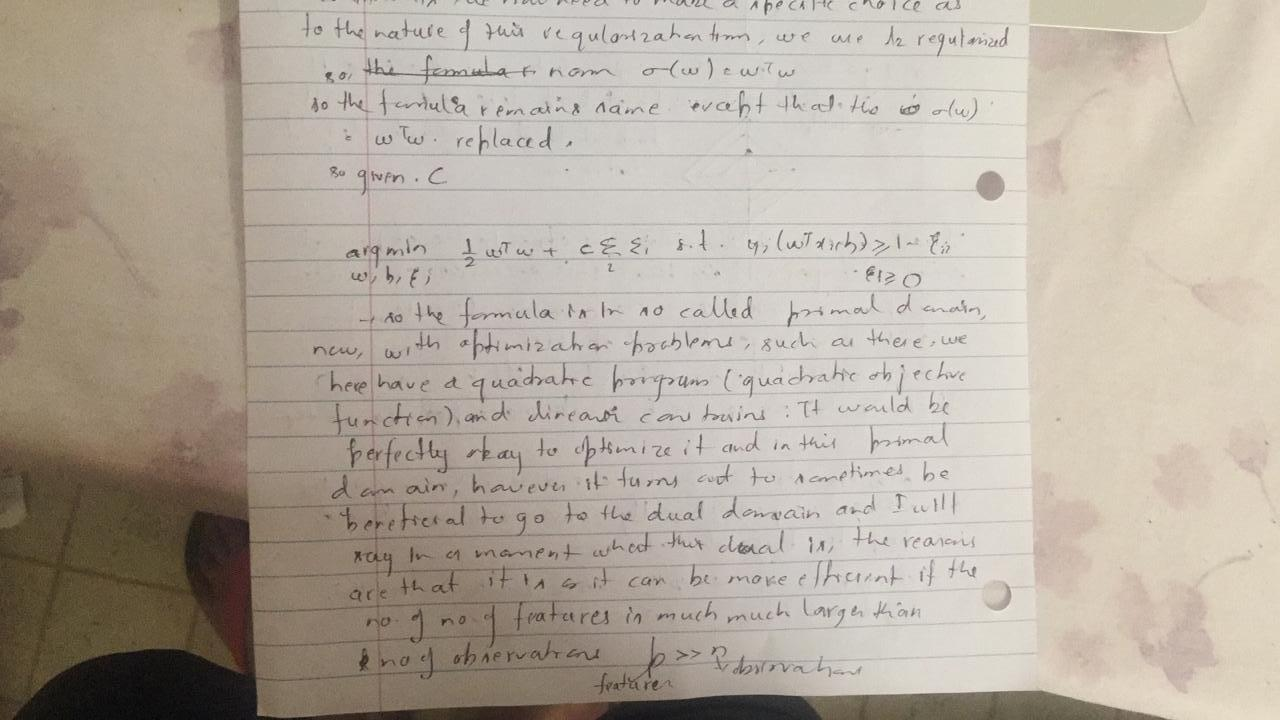 to make a specific choice as
to the nature of this regularization, we use L2 regularized
so, the formula norm σ(w) = wᵀw
so the formula remains same except that the is σ(w)
= wᵀw. replaced.
so given. C
argmin ½ wᵀw + c Σ ξi s.t. yi (wᵀxi+b) ≥ 1 - ξi,
w, b, ξi i ξi ≥ 0
→ so the formula is in so called primal domain,
now, with optimization problems, such as these, we
here have a quadratic program (quadratic objective
function), and linear constrains : It would be
perfectly okay to optimize it and in this primal
domain, however it turns out to sometimes be
beneficial to go to the dual domain and I will
say in a moment what this dual is, the reasons
are that it is it can be more efficient if the
no. of no. of features is much much larger than
no of observations p >> n observations
features